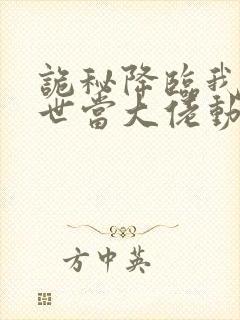 詭秘降臨我
世當大佬動
方中英